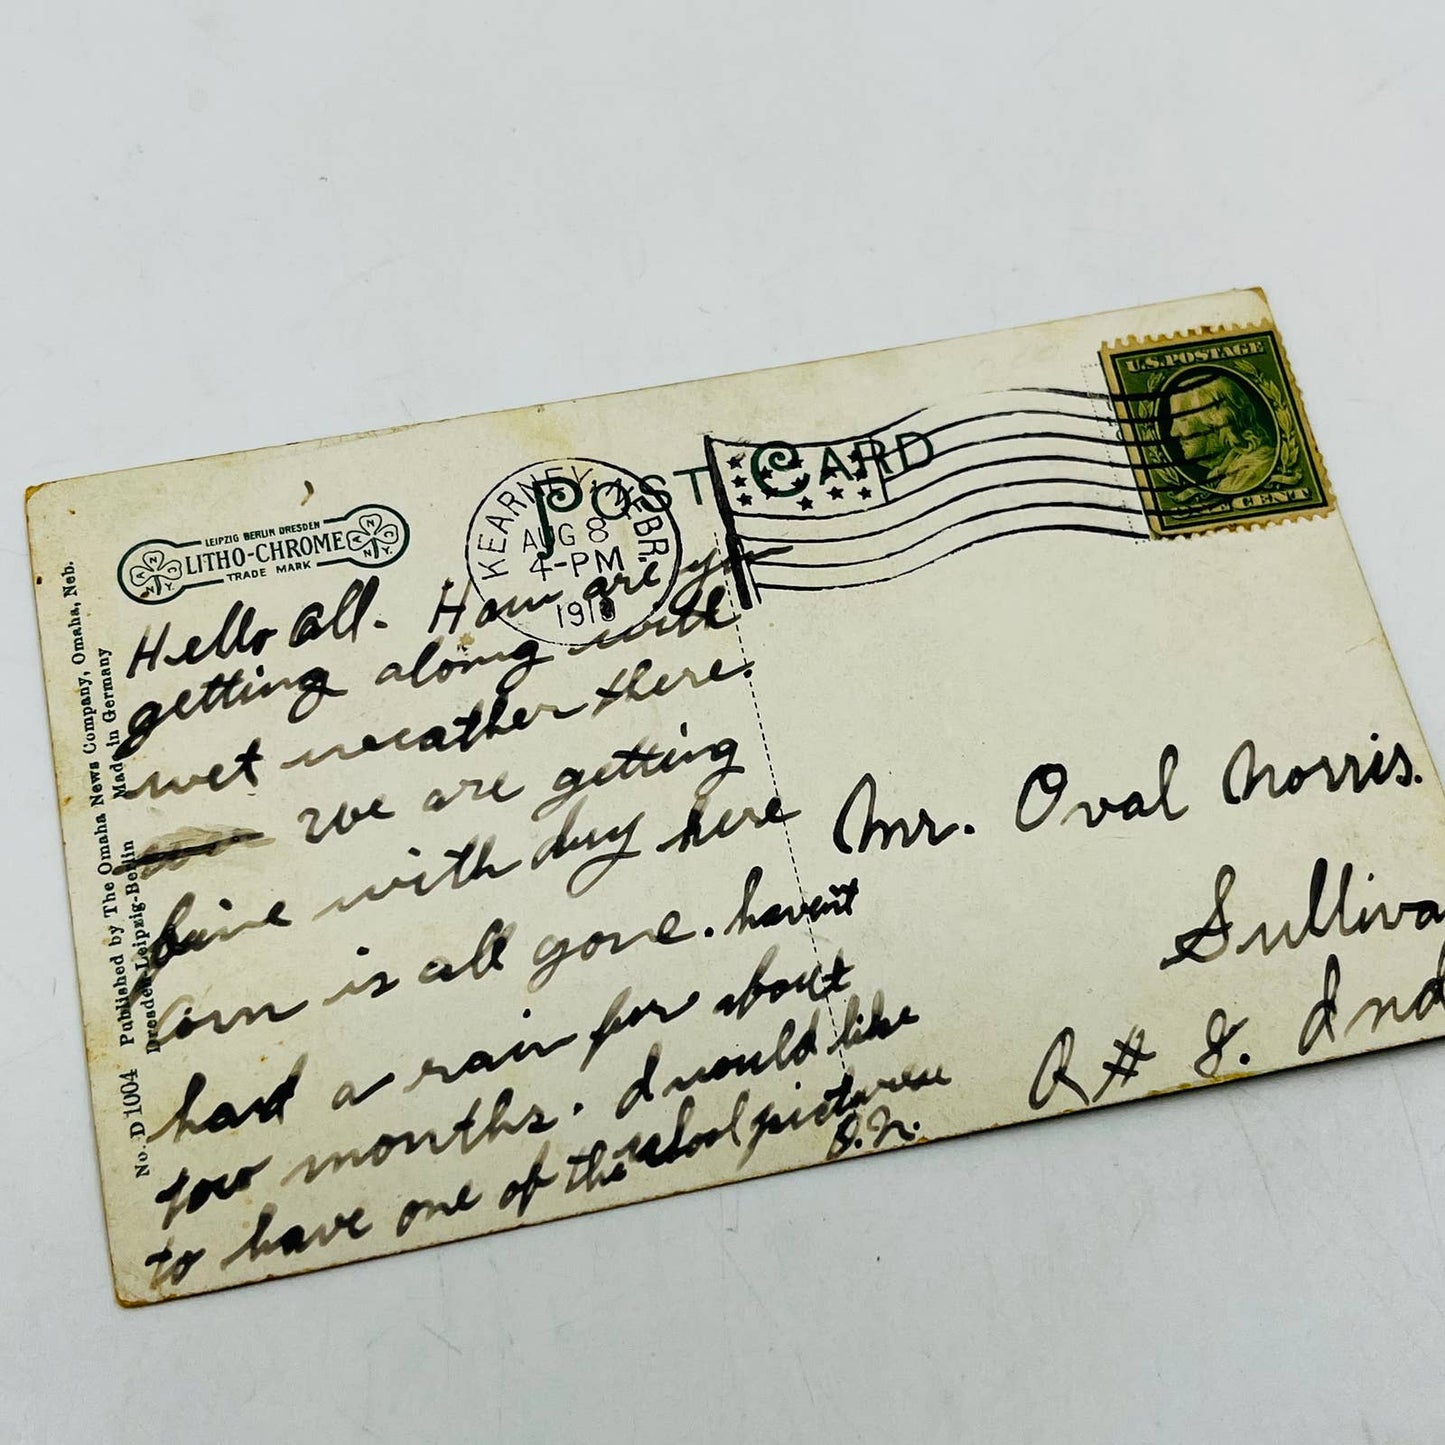 POST CARD
U.S. POSTAGE
ONE CENT
KEARNEY, NEBR.
AUG 8
4-PM
1910
LEIPZIG BERLIN DRESDEN
LITHO-CHROME
TRADE MARK
No. D 1004 Published by The Omaha News Company, Omaha, Neb.
Dresden-Leipzig-Berlin Made in Germany
Hello all. How are you
getting along with
wet weather there.
we are getting
fine with dry here
Corn is all gone. havent
had a rain for about
tow months. I would like
to have one of the school pictures
O.N.
Mr. Oval Norris.
Sulliva
R # 8. Ind